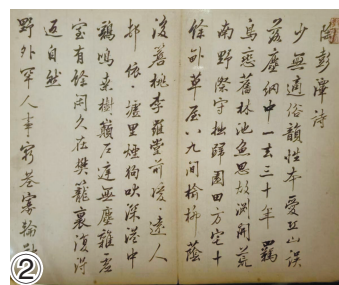 陶彭澤詩
少無適俗韻性本愛丘山誤
落塵網中一去三十年羈
鳥戀舊林池魚思故淵開荒
南野際守拙歸園田方宅十
餘畝草屋八九間榆柳蔭
後簷桃李羅堂前曖〻遠人
邨依〻墟里煙狗吠深巷中
鷄鳴桑樹巔戶庭無塵雜虛
室有餘閒久在樊籠裏復得
返自然
野外罕人事窮巷寡輪
②